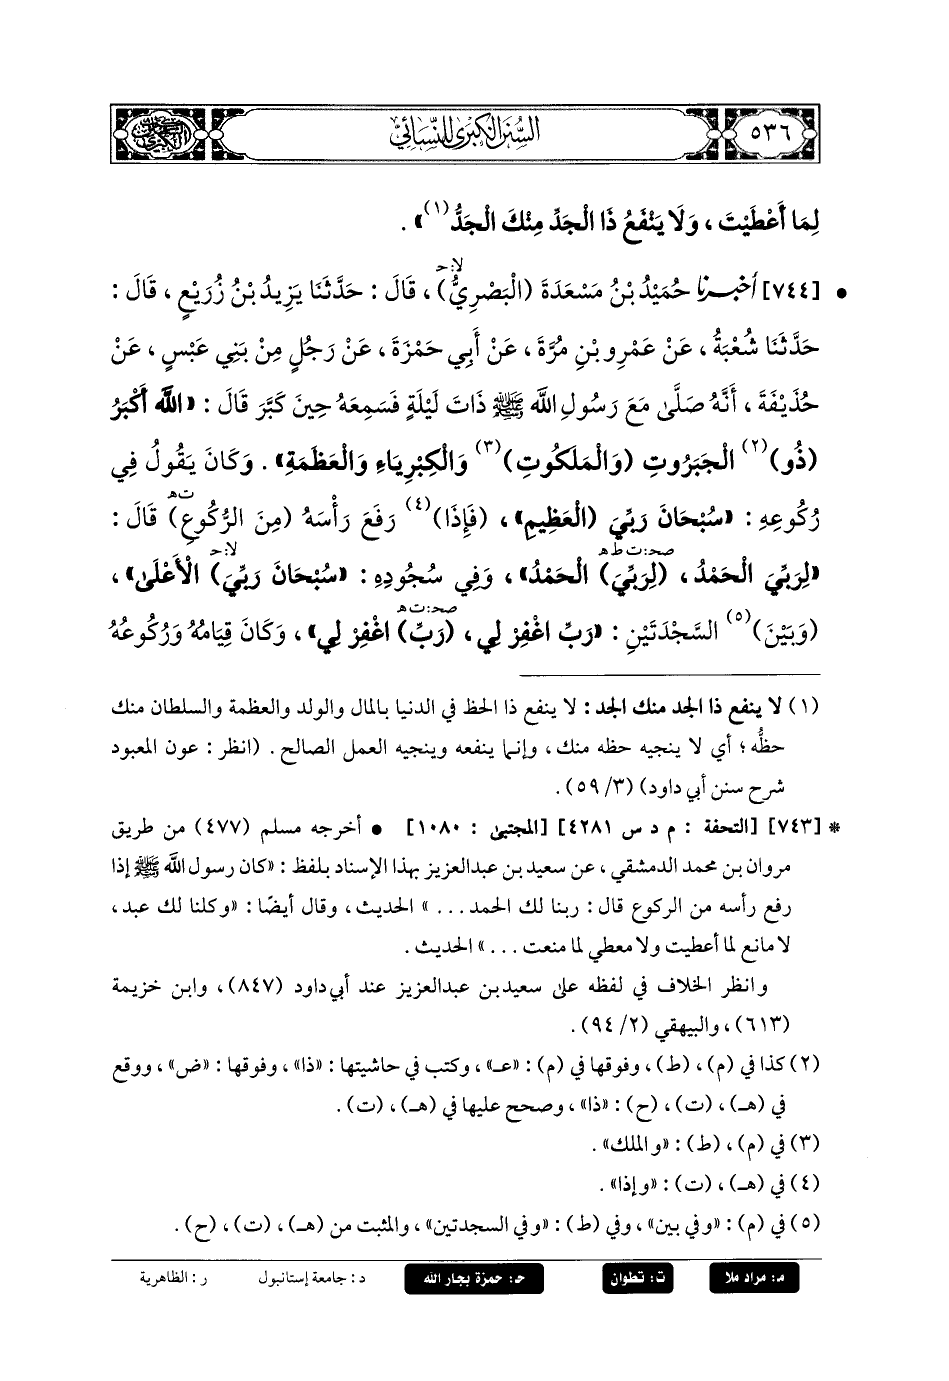 ٥٣٦
السنن الكبرى للنسائي
لِمَا أَعْطَيْتَ ، وَلَا يَنْفَعُ ذَا الْجَدِّ مِنْكَ الْجَدُّ(١)» .
لا: حـ
• [٧٤٤] أخبرنا حُمَيْدُ بْنُ مَسْعَدَةَ (الْبَصْرِيُّ) ، قَالَ : حَدَّثَنَا يَزِيدُ بْنُ زُرَيْعٍ ، قَالَ :
حَدَّثَنَا شُعْبَةُ ، عَنْ عَمْرِو بْنِ مُرَّةَ ، عَنْ أَبِي حَمْزَةَ ، عَنْ رَجُلٍ مِنْ بَنِي عَبْسٍ ، عَنْ
حُذَيْفَةَ ، أَنَّهُ صَلَّى مَعَ رَسُولِ اللَّهِ ﷺ ذَاتَ لَيْلَةٍ فَسَمِعَهُ حِينَ كَبَّرَ قَالَ : «اللَّهُ أَكْبَرُ
(ذُو)(٢) الْجَبَرُوتِ (وَالْمَلَكُوتِ)(٣) وَالْكِبْرِيَاءِ وَالْعَظَمَةِ» . وَكَانَ يَقُولُ فِي
ت هـ
رُكُوعِهِ : «سُبْحَانَ رَبِّيَ (الْعَظِيمِ)» ، (فَإِذَا)(٤) رَفَعَ رَأْسَهُ (مِنَ الرُّكُوعِ) قَالَ :
صحـ: ت ط هـ لا: حـ
«لِرَبِّيَ الْحَمْدُ ، (لِرَبِّيَ) الْحَمْدُ» ، وَفِي سُجُودِهِ : «سُبْحَانَ رَبِّيَ) الْأَعْلَى» ،
صحـ: ت هـ
(وَبَيْنَ)(٥) السَّجْدَتَيْنِ : «رَبِّ اغْفِرْ لِي ، (رَبِّ) اغْفِرْ لِي» ، وَكَانَ قِيَامُهُ وَرُكُوعُهُ
(١) لا ينفع ذا الجد منك الجد : لا ينفع ذا الحظ في الدنيا بالمال والولد والعظمة والسلطان منك
حظُّه ؛ أي لا ينجيه حظه منك ، وإنما ينفعه وينجيه العمل الصالح . (انظر : عون المعبود
شرح سنن أبي داود) (٣/ ٥٩) .
* [٧٤٣] [التحفة : م د س ٤٢٨١] [المجتبى : ١٠٨٠] • أخرجه مسلم (٤٧٧) من طريق
مروان بن محمد الدمشقي ، عن سعيد بن عبدالعزيز بهذا الإسناد بلفظ : «كان رسول الله ﷺ إذا
رفع رأسه من الركوع قال : ربنا لك الحمد ...» الحديث ، وقال أيضًا : «وكلنا لك عبد ،
لا مانع لما أعطيت ولا معطي لما منعت ...» الحديث .
وانظر الخلاف في لفظه على سعيد بن عبدالعزيز عند أبي داود (٨٤٧) ، وابن خزيمة
(٦١٣) ، والبيهقي (٢/ ٩٤) .
(٢) كذا في (م) ، (ط) ، وفوقها في (م) : «عـ» ، وكتب في حاشيتها : «ذا» ، وفوقها : «ض» ، ووقع
في (هـ) ، (ت) ، (ح) : «ذا» ، وصحح عليها في (هـ) ، (ت) .
(٣) في (م) ، (ط) : «والملك» .
(٤) في (هـ) ، (ت) : «وإذا» .
(٥) في (م) : «وفي بين» ، وفي (ط) : «وفي السجدتين» ، والمثبت من (هـ) ، (ت) ، (ح) .
م: مراد ملا ت: تطوان حـ: حمزة بجار الله د: جامعة إستانبول ر: الظاهرية